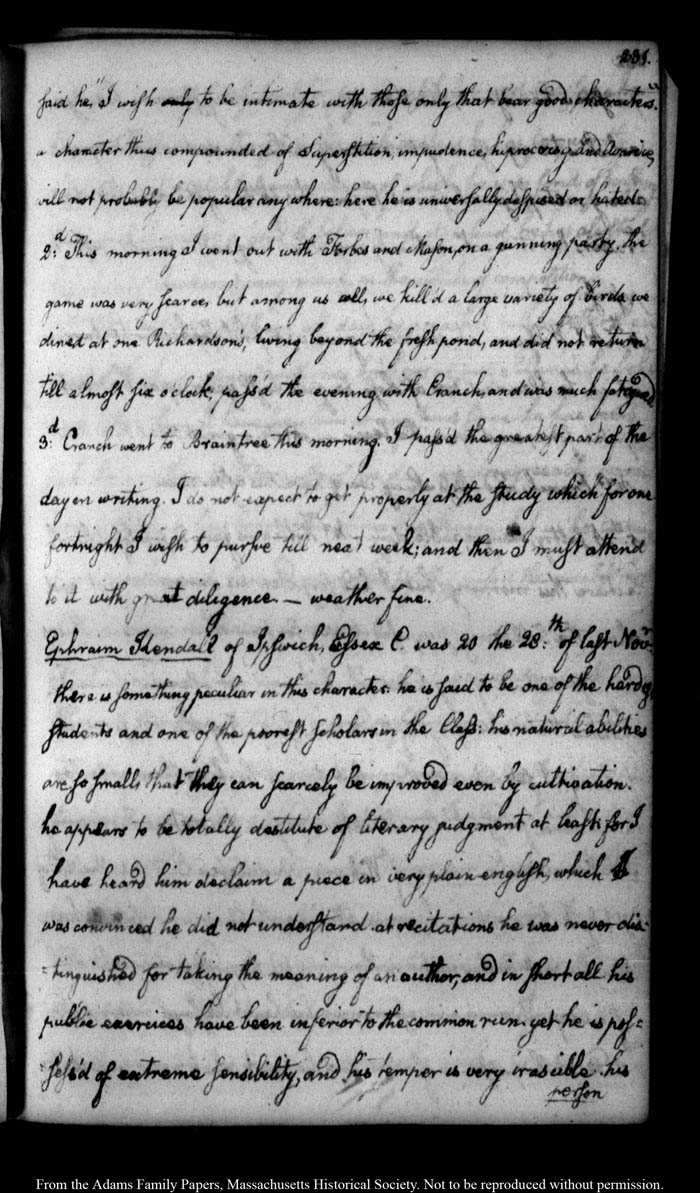 231.
said he, "I wish only to be intimate with those only that bear good characters."
a character thus compounded of Superstition, impudence, hiprocricy and Avarice,
will not probably be popular any where: here he is universally despised or hated.
2:d This morning I went out with Forbes and Mason, on a gunning party. the
game was very scarce, but among us all, we kill'd a large variety of birds we
dined at one Richardson's, living beyond the fresh pond, and did not return
till almost six o'clock; pass'd the evening with Cranch, and was much fatigued
3:d Cranch went to Braintree this morning. I pass'd the greatest part of the
day in writing. I do not expect to get properly at the study which for one
fortnight I wish to pursue till next week; and then I must attend
to it with great diligence — weather fine.
Ephraim Kendall of Ipswich, Essex C. was 20 the 28:th of last Novr:
there is something peculiar in this character. he is said to be one of the hardest
students and one of the poorest scholars in the Class: his natural abilities
are so small, that they can scarcely be improved even by cultivation.
he appears to be totally destitute of literary judgment at least: for I
have heard him declaim a piece in very plain english, which I
was convinced he did not understand. at recitations he was never dis-
=tinguished for taking the meaning of an author, and in short all his
public exercices have been inferior to the common run. yet he is pos=
sess'd of extreme sensibility, and his temper is very irascible. his
person
From the Adams Family Papers, Massachusetts Historical Society. Not to be reproduced without permission.